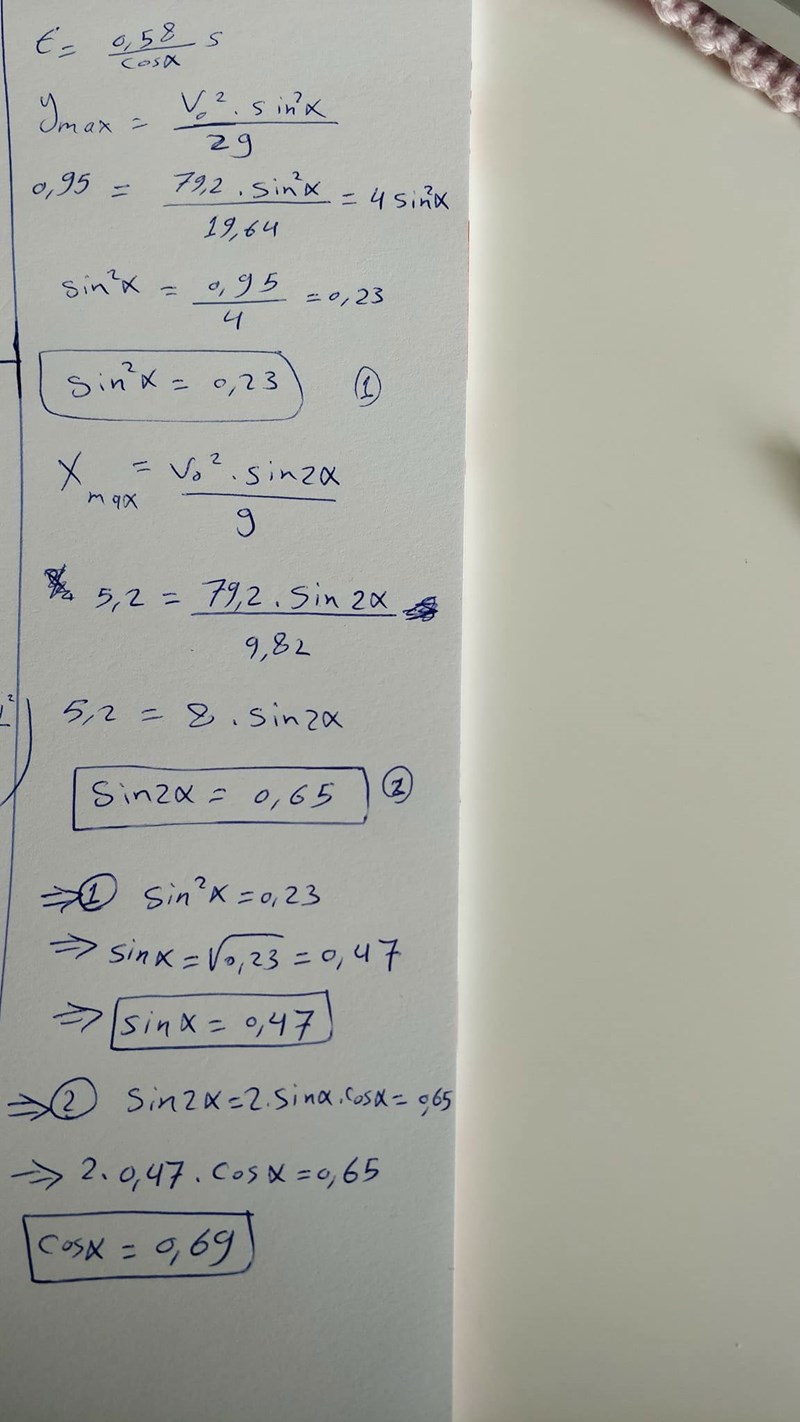 t = 0,58 / cosα s
y max = V₀² . sin²α / 2g
0,95 = 79,2 . sin²α / 19,64 = 4 sin²α
sin²α = 0,95 / 4 = 0,23
sin²α = 0,23 ①
X max = V₀² . sin2α / g
5,2 = 79,2 . sin 2α / 9,82
5,2 = 8 . sin2α
sin2α = 0,65 ②
⇒ ① sin²α = 0,23
⇒ sinα = √0,23 = 0,47
⇒ sinα = 0,47
⇒ ② sin2α = 2 . sinα . cosα = 0,65
⇒ 2 . 0,47 . cosα = 0,65
cosα = 0,69